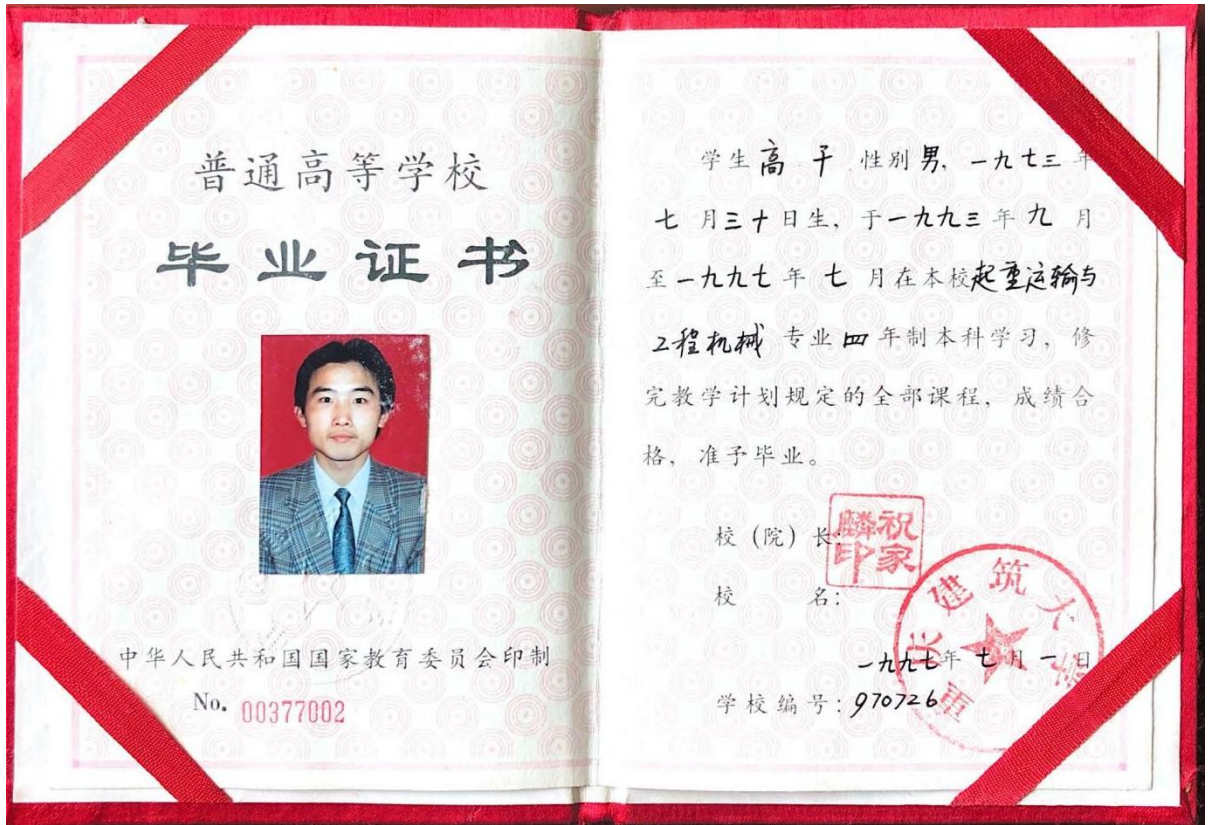 普通高等学校
毕业证书
中华人民共和国国家教育委员会印制
No. 00377002
学生高 干 性别男, 一九七三年
七月三十日生, 于一九九三年九月
至一九九七年七月在本校起重运输与
工程机械专业四年制本科学习, 修
完教学计划规定的全部课程, 成绩合
格, 准予毕业。
校(院)长:
祝家麟印
校 名:
重庆建筑大学
一九九七年七月一日
学校编号: 970726